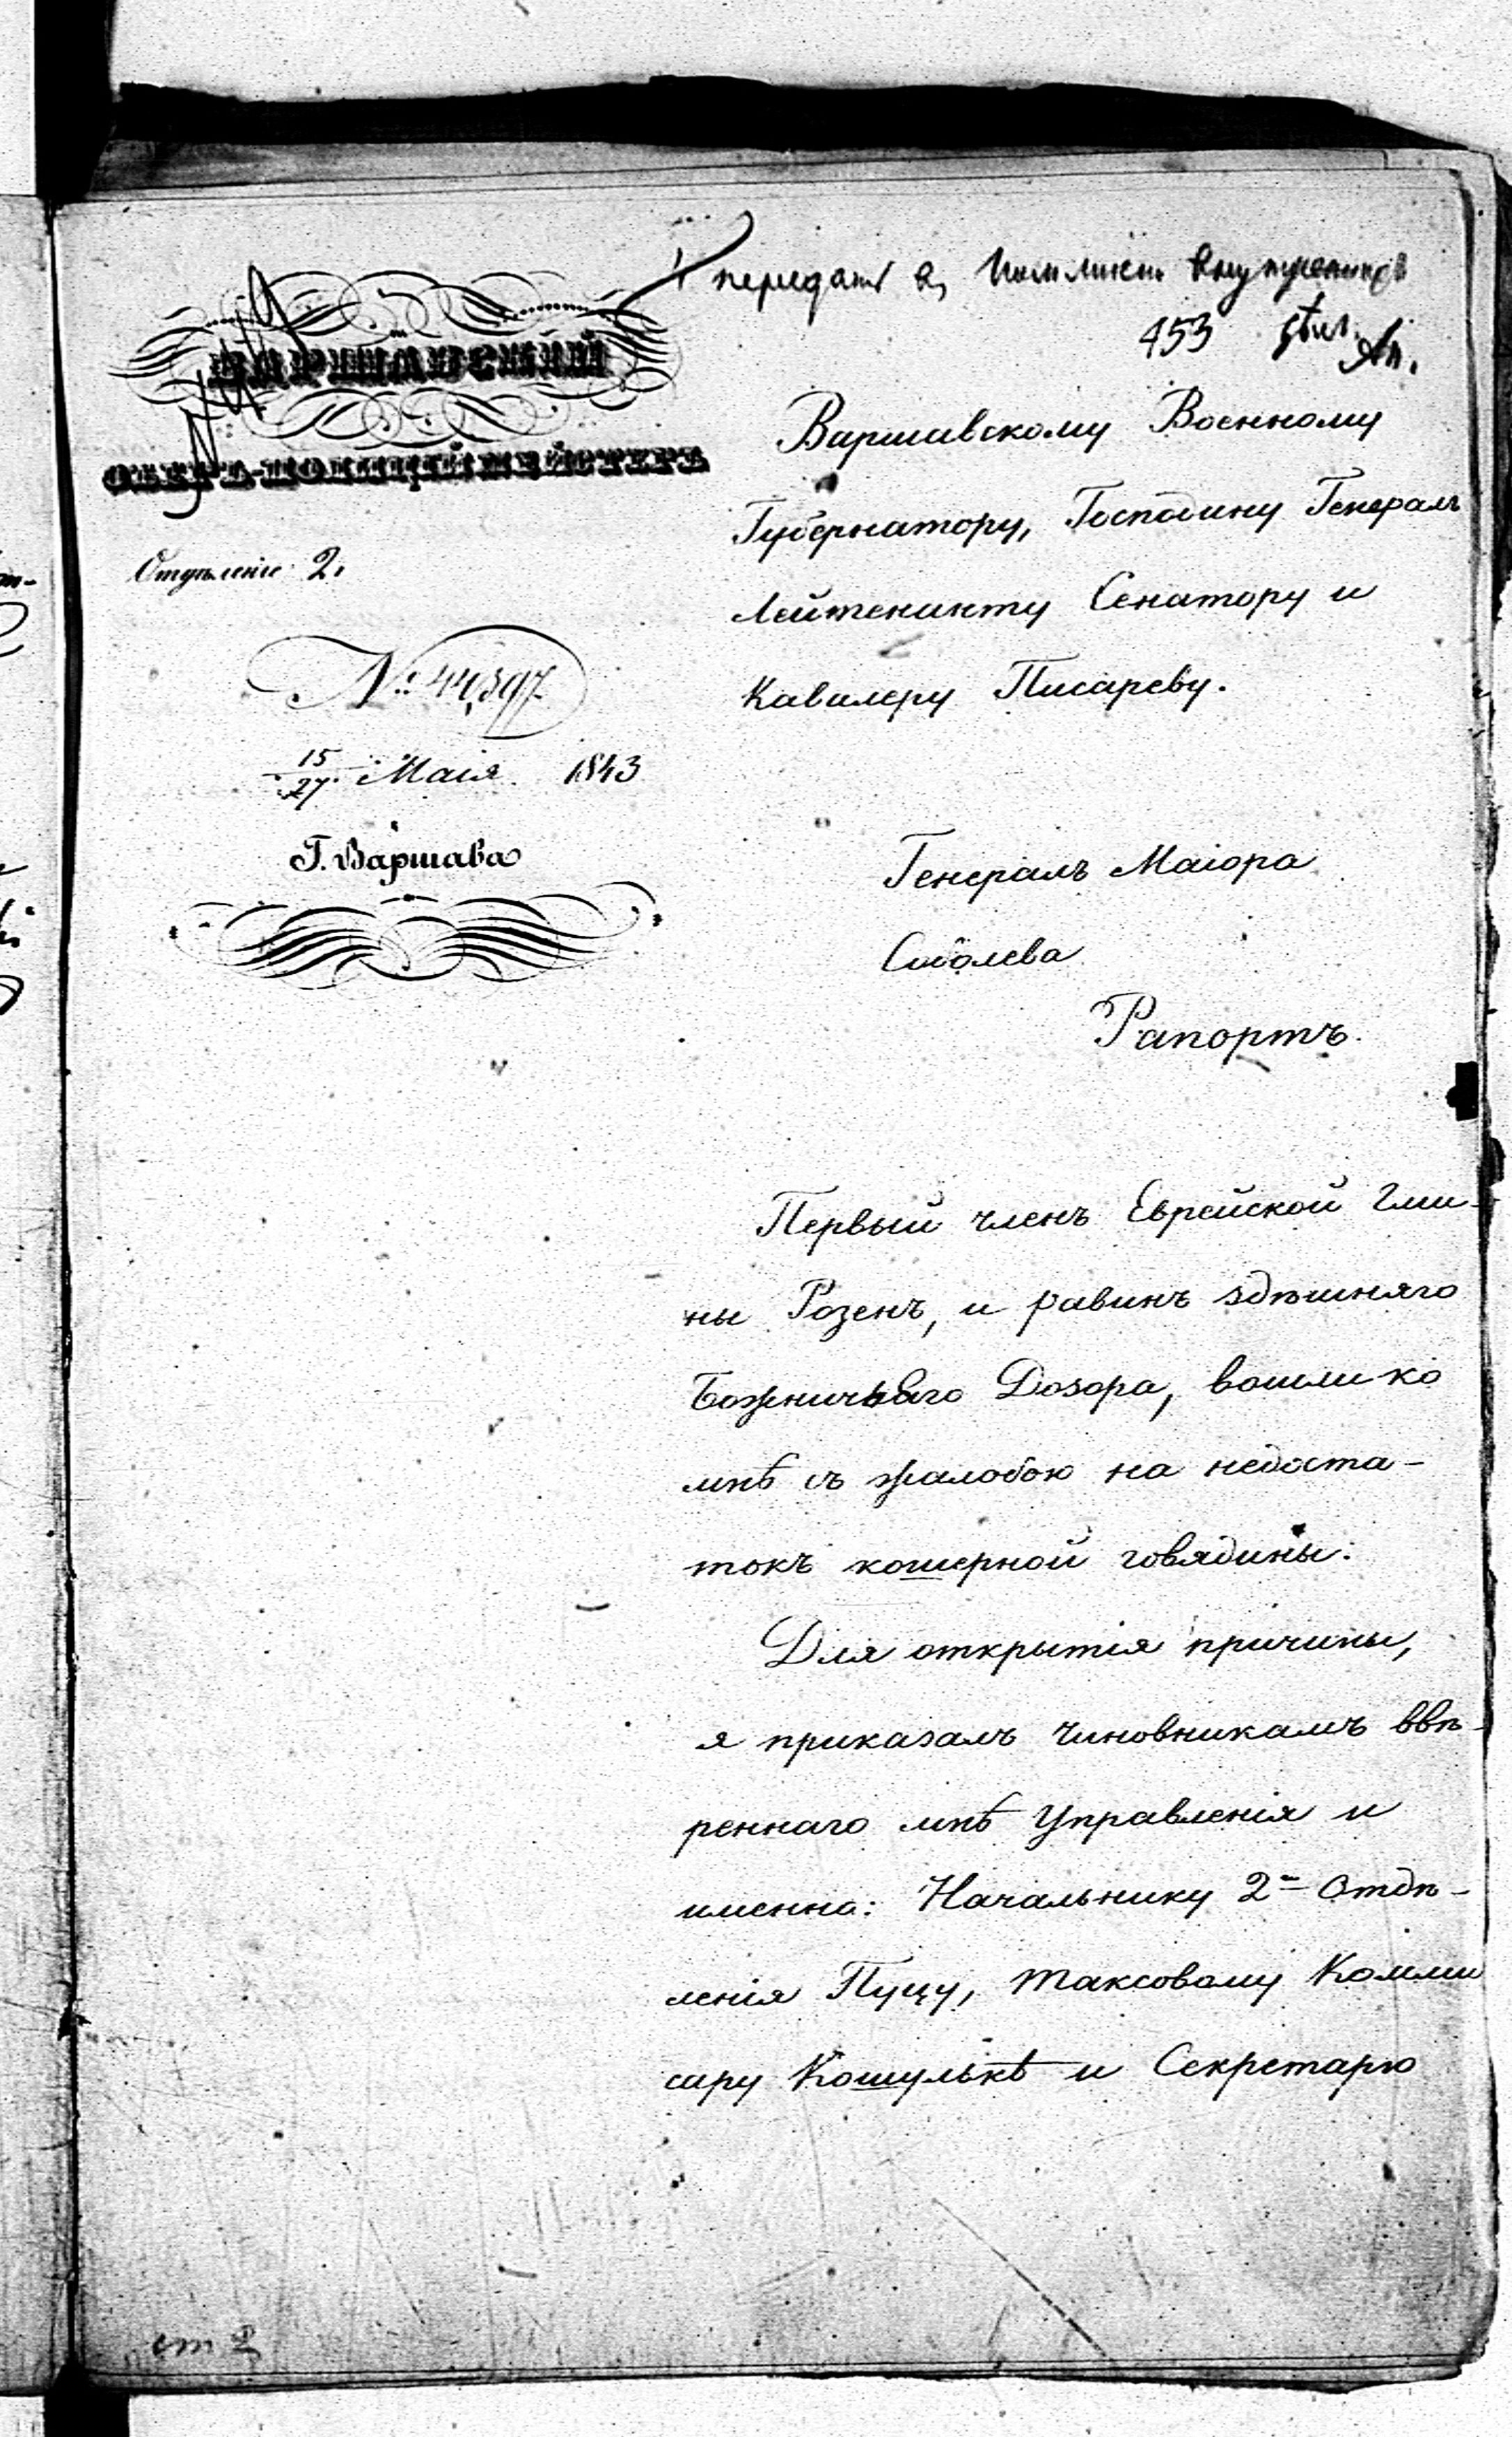 передать въ Коммисію внутреннихъ
453 дѣлъ.
ВАРШАВСКІЙ
ОБЕРЪ-ПОЛИЦІЙМЕЙСТЕРЪ
Отдѣленіе 2.
15/27 Маія 1843
Г. Варшава
Варшавскому Военному
Губернатору, Господину Генералъ
Лейтенанту Сенатору и
Кавалеру Писареву.
Генералъ Маіора
Соболева
Рапортъ.
Первый членъ Еврейской Гми-
ны Розенъ, и равинъ здѣшняго
Божничьяго Дозора, вошли ко
мнѣ съ жалобою на недоста-
токъ кошерной говядины.
Для открытія причины,
я приказалъ чиновникамъ ввѣ-
реннаго мнѣ Управленія и
именно: Начальнику 2го Отдѣ-
ленія Пуцу, таксовому Комми
сару Кошулькѣ и Секретарю